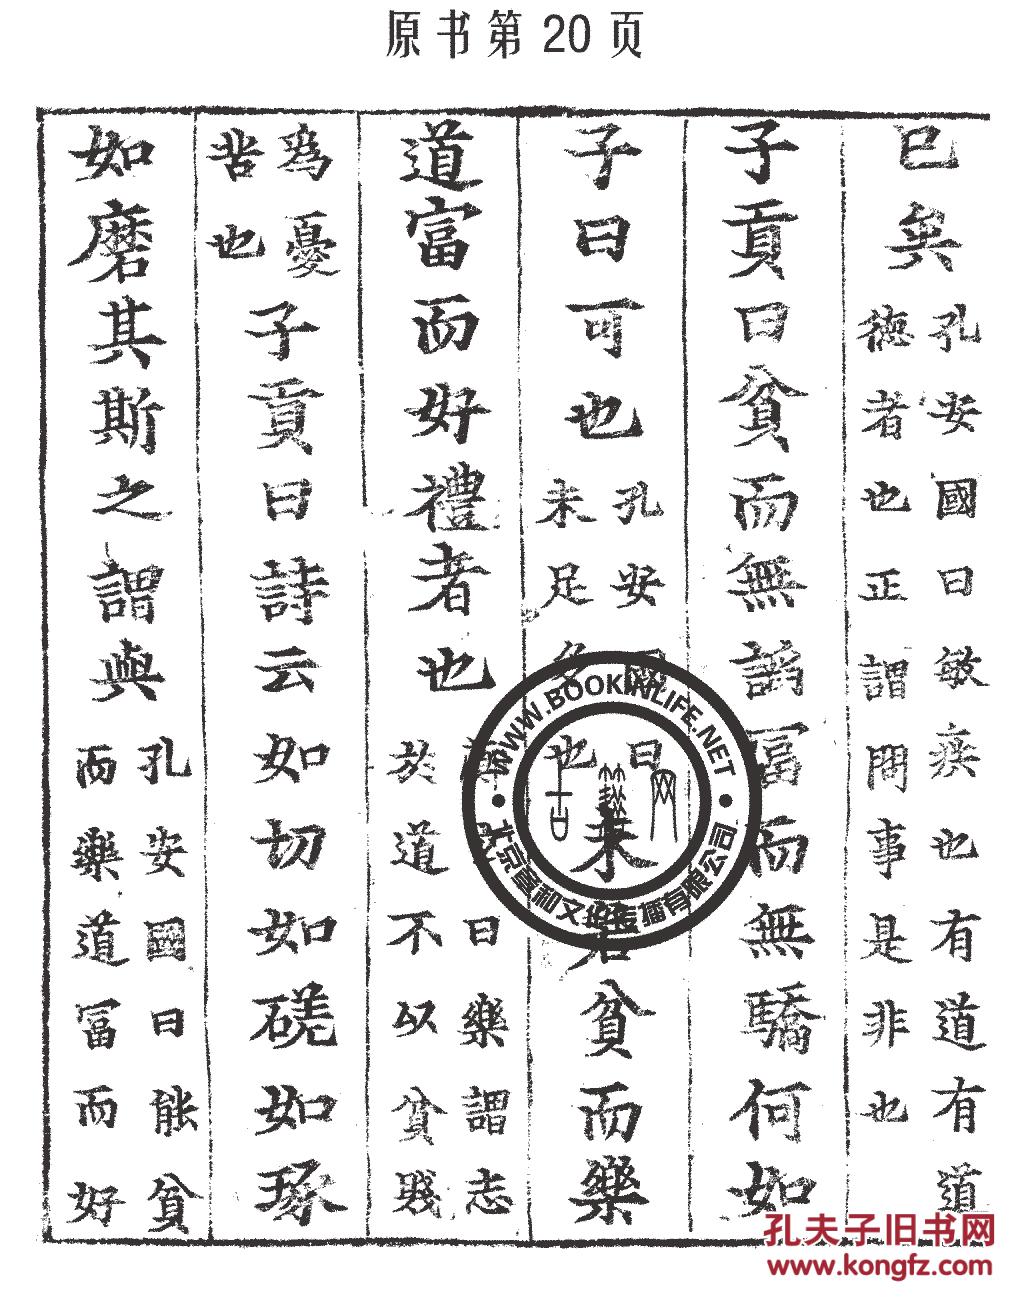 原书第20页
已矣孔安國曰敏疾也有道有道
德者也正謂問事是非也
子貢曰貧而無謟冨而無驕何如
子曰可也孔安國曰
未足多也
未若貧而樂
道富而好禮者也鄭玄曰樂謂志
於道不以貧賤
為憂
苦也
子貢曰詩云如切如磋如琢
如磨其斯之謂與孔安國曰能貧
而樂道冨而好
WWW.BOOKINLIFE.NET
北京和文化传播有限公司
孔夫子旧书网
www.kongfz.com